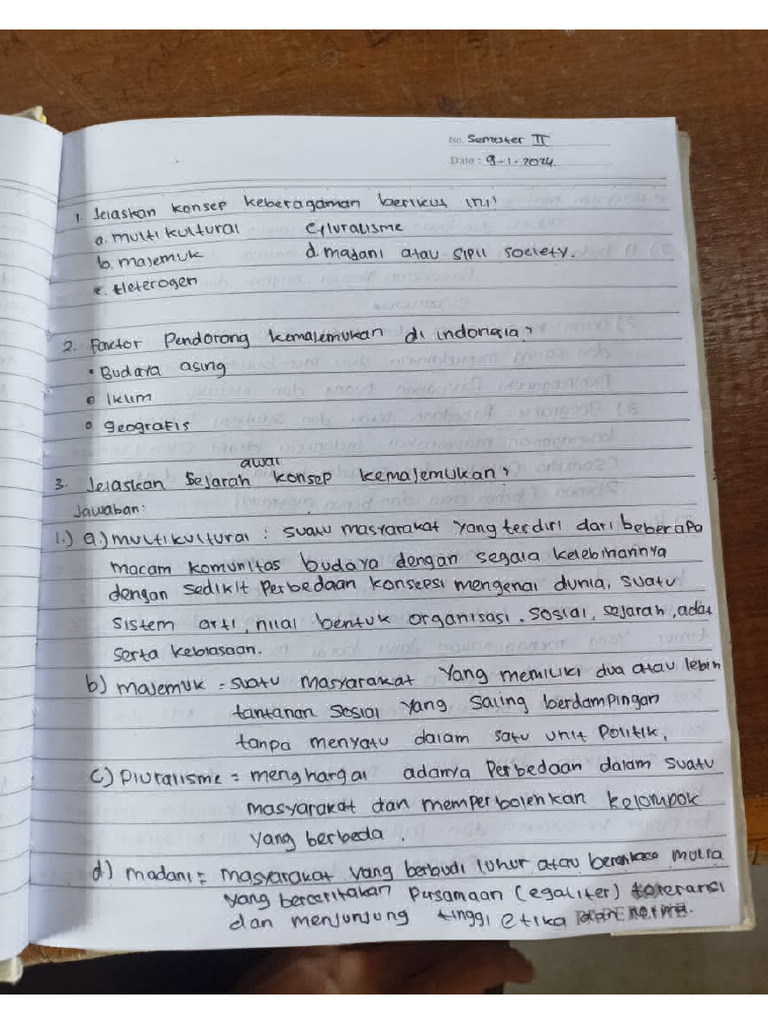 No. Semester II
Date : 9-1-2024
1. Jelaskan konsep keberagaman berikut ini!
a. multi kultural c. pluralisme
b. majemuk d. madani atau sipil society.
e. Heterogen
2. Faktor Pendorong kemajemukan di indonesia?
• Budaya asing
• Iklim
• geografis
awal
3. Jelaskan Sejarah konsep kemajemukan?
Jawaban:
1.) a.) multikultural : suatu masyarakat yang terdiri dari beberapa
macam komunitas budaya dengan segala kelebihannya
dengan sedikit perbedaan konsepsi mengenai dunia, suatu
sistem arti, nilai bentuk organisasi, sosial, sejarah, adat
serta kebiasaan.
b) majemuk = suatu masyarakat yang memiliki dua atau lebih
tantanan sosial yang saling berdampingan
tanpa menyatu dalam satu unit politik.
c) Pluralisme = menghargai adanya Perbedaan dalam suatu
masyarakat dan memperbolehkan kelompok
yang berbeda.
d) madani = masyarakat yang berbudi luhur atau mulia
yang berceritakan Persamaan (egaliter) toleransi
dan menjunjung tinggi etika dan norma.